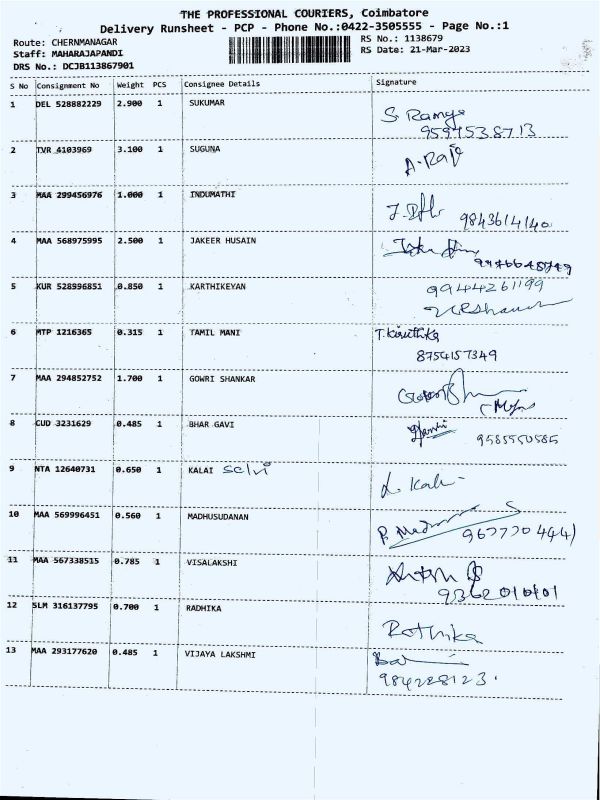 THE PROFESSIONAL COURIERS, Coimbatore
Delivery Runsheet - PCP - Phone No.:0422-3505555 - Page No.:1
Route: CHERNMANAGAR
RS No.: 1138679
Staff: MAHARAJAPANDI
RS Date: 21-Mar-2023
DRS No.: DCJB113867901
S No Consignment No Weight PCS Consignee Details Signature
1 DEL 528882229 2.900 1 SUKUMAR S. Ramya
9597538713
2 TVR 4103969 3.100 1 SUGUNA A. Raji
3 MAA 299456976 1.000 1 INDUMATHI
9843614140
4 MAA 568975995 2.500 1 JAKEER HUSAIN
5 KUR 528996851 0.850 1 KARTHIKEYAN 9944261199
6 MTP 1216365 0.315 1 TAMIL MANI T. Kiruthika
8754157349
7 MAA 294852752 1.700 1 GOWRI SHANKAR
8 CUD 3231629 0.485 1 BHAR GAVI
9585550585
9 NTA 12640731 0.650 1 KALAI selvi
10 MAA 569996451 0.560 1 MADHUSUDANAN
11 MAA 567338515 0.785 1 VISALAKSHI
9362010101
12 SLM 316137795 0.700 1 RADHIKA Rathika
13 MAA 293177620 0.485 1 VIJAYA LAKSHMI
984228123.